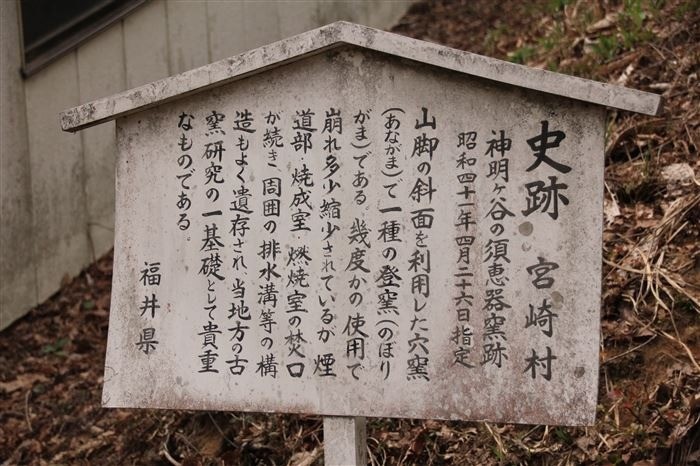 史跡 宮崎村
神明ヶ谷の須恵器窯跡
昭和四十一年四月二十六日指定
山脚の斜面を利用した穴窯
(あながま)で一種の登窯(のぼり
がま)である。幾度かの使用で
崩れ多少縮少されているが煙
道部・焼成室・燃焼室の焚口
が続き周囲の排水溝等の構
造もよく遺存され、当地方の古
窯研究の一基礎として貴重
なものである。
福井県